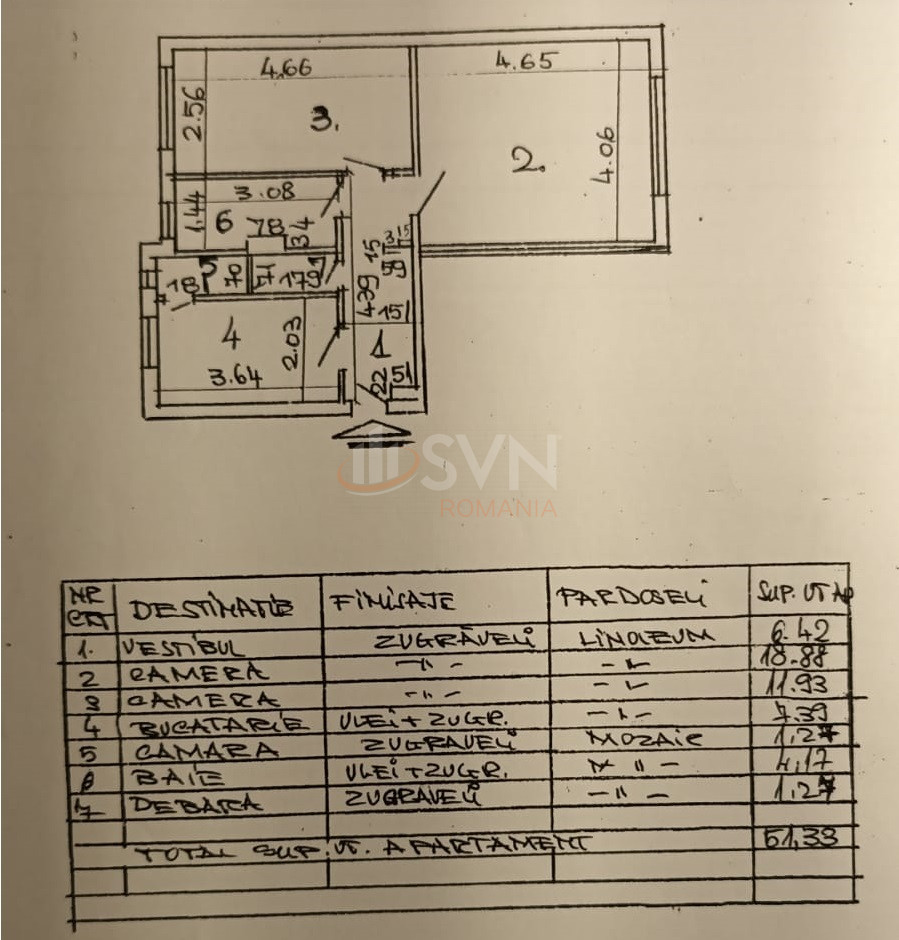 4.66
4.65
2.56
3.
2.
4.06
3.08
1.44
6
78
34
15
3
15
99
18
179
439
151
4
2.03
1
3.64
22
51
SVN
ROMANIA
NR CRT DESTINATIE FINISAJE PARDOSELI SUP. UT MP
1. VESTIBUL ZUGRĂVELI LINOLEUM 6.42
2 CAMERA -"- -"- 18.88
3 CAMERA -"- -"- 11.93
4 BUCATARIE ULEI+ZUGR. -"- 7.39
5 CAMARA ZUGRAVELI MOZAIC 1,27
6 BAIE ULEI+ZUGR. -"- 4,17
7 DEBARA ZUGRAVELI -"- 1,27
TOTAL SUP. UT. APARTAMENT 51,33